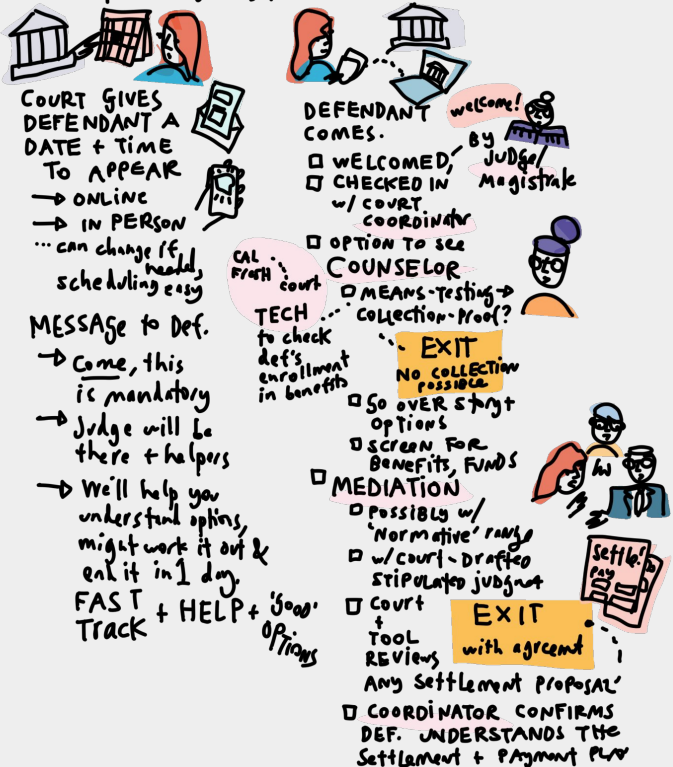 COURT GIVES
DEFENDANT A
DATE + TIME
TO APPEAR
→ ONLINE
→ IN PERSON
...can change if
needed,
scheduling easy
MESSAGE to Def.
→ Come, this
is mandatory
→ Judge will be
there + helpers
→ We'll help you
understand options,
might work it out &
end it in 1 day.
FAST
Track + HELP + 'good'
OPTIONS
DEFENDANT
COMES.
WELCOMED,
By
JUDGE/
Magistrate
welcome!
CHECKED IN
w/ COURT
COORDINATOR
OPTION TO SEE
COUNSELOR
MEANS-Testing→
Collection-Proof?
CAL
FRESH
court
TECH
to check
def's
enrollment
in benefits
EXIT
NO COLLECTION
POSSIBLE
GO OVER Story+
OPTIONS
SCREEN FOR
BENEFITS, FUNDS
MEDIATION
Possibly w/
'Normative' range
w/ Court-Drafted
STIPULATED judgmt
Settle!
Pay
Court
+
TOOL
REVIEWS
ANY Settlement PROPOSAL
EXIT
with agreemt
COORDINATOR CONFIRMS
DEF. UNDERSTANDS THE
Settlement + PAYment PLAN